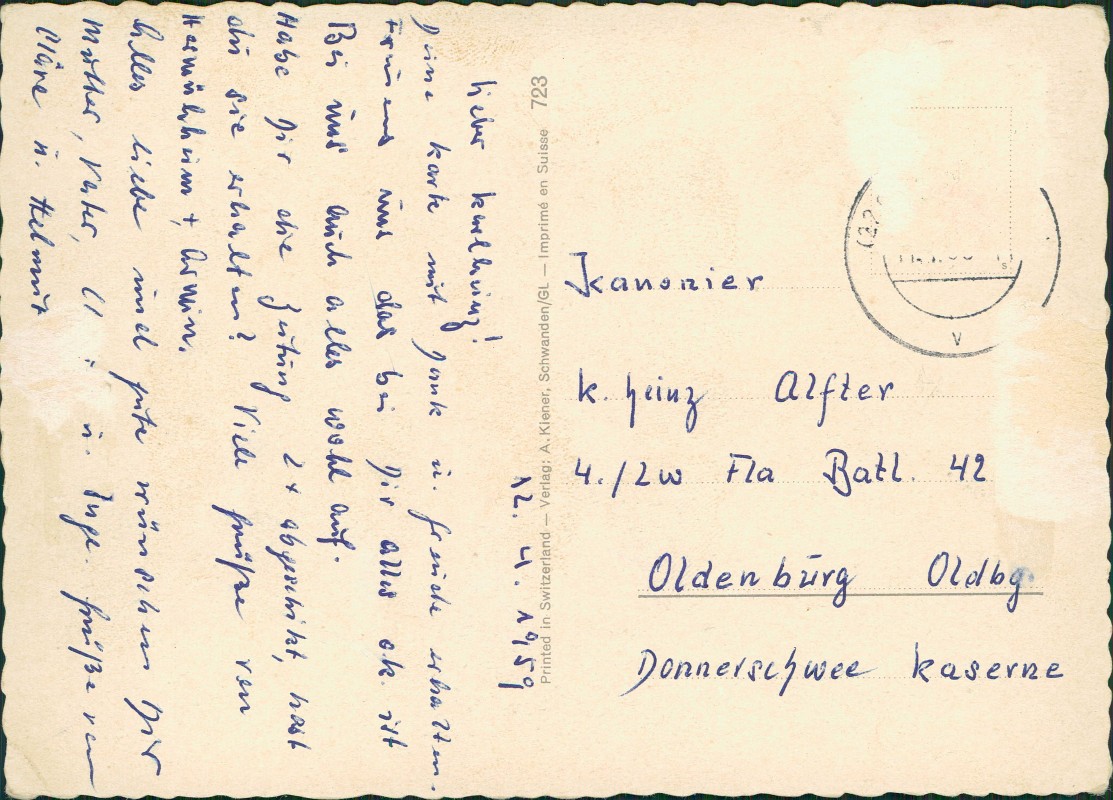 12. 11. 1959
Lieber Karlheinz!
Deine Karte mit Dank u. Freude erhalten.
Freuen uns das bei Dir alles ok. ist
Bei uns auch alles wohl auf.
Habe Dir die Zeitung 2 x abgeschikt, hast
du sie erhalten? Viele Grüße von
+ Armin.
Alles liebe und gute wünschen Dir
Mutter, Vater, u. Inge. Grüße von
Cläre u. Helmut
Printed in Switzerland — Verlag: A. Kiener, Schwanden/GL — Imprimé en Suisse 723
Kanonier
K. Heinz Alfter
4./Lw Fla Batl. 42
Oldenburg Oldbg.
Donnerschwee Kaserne
(22
V